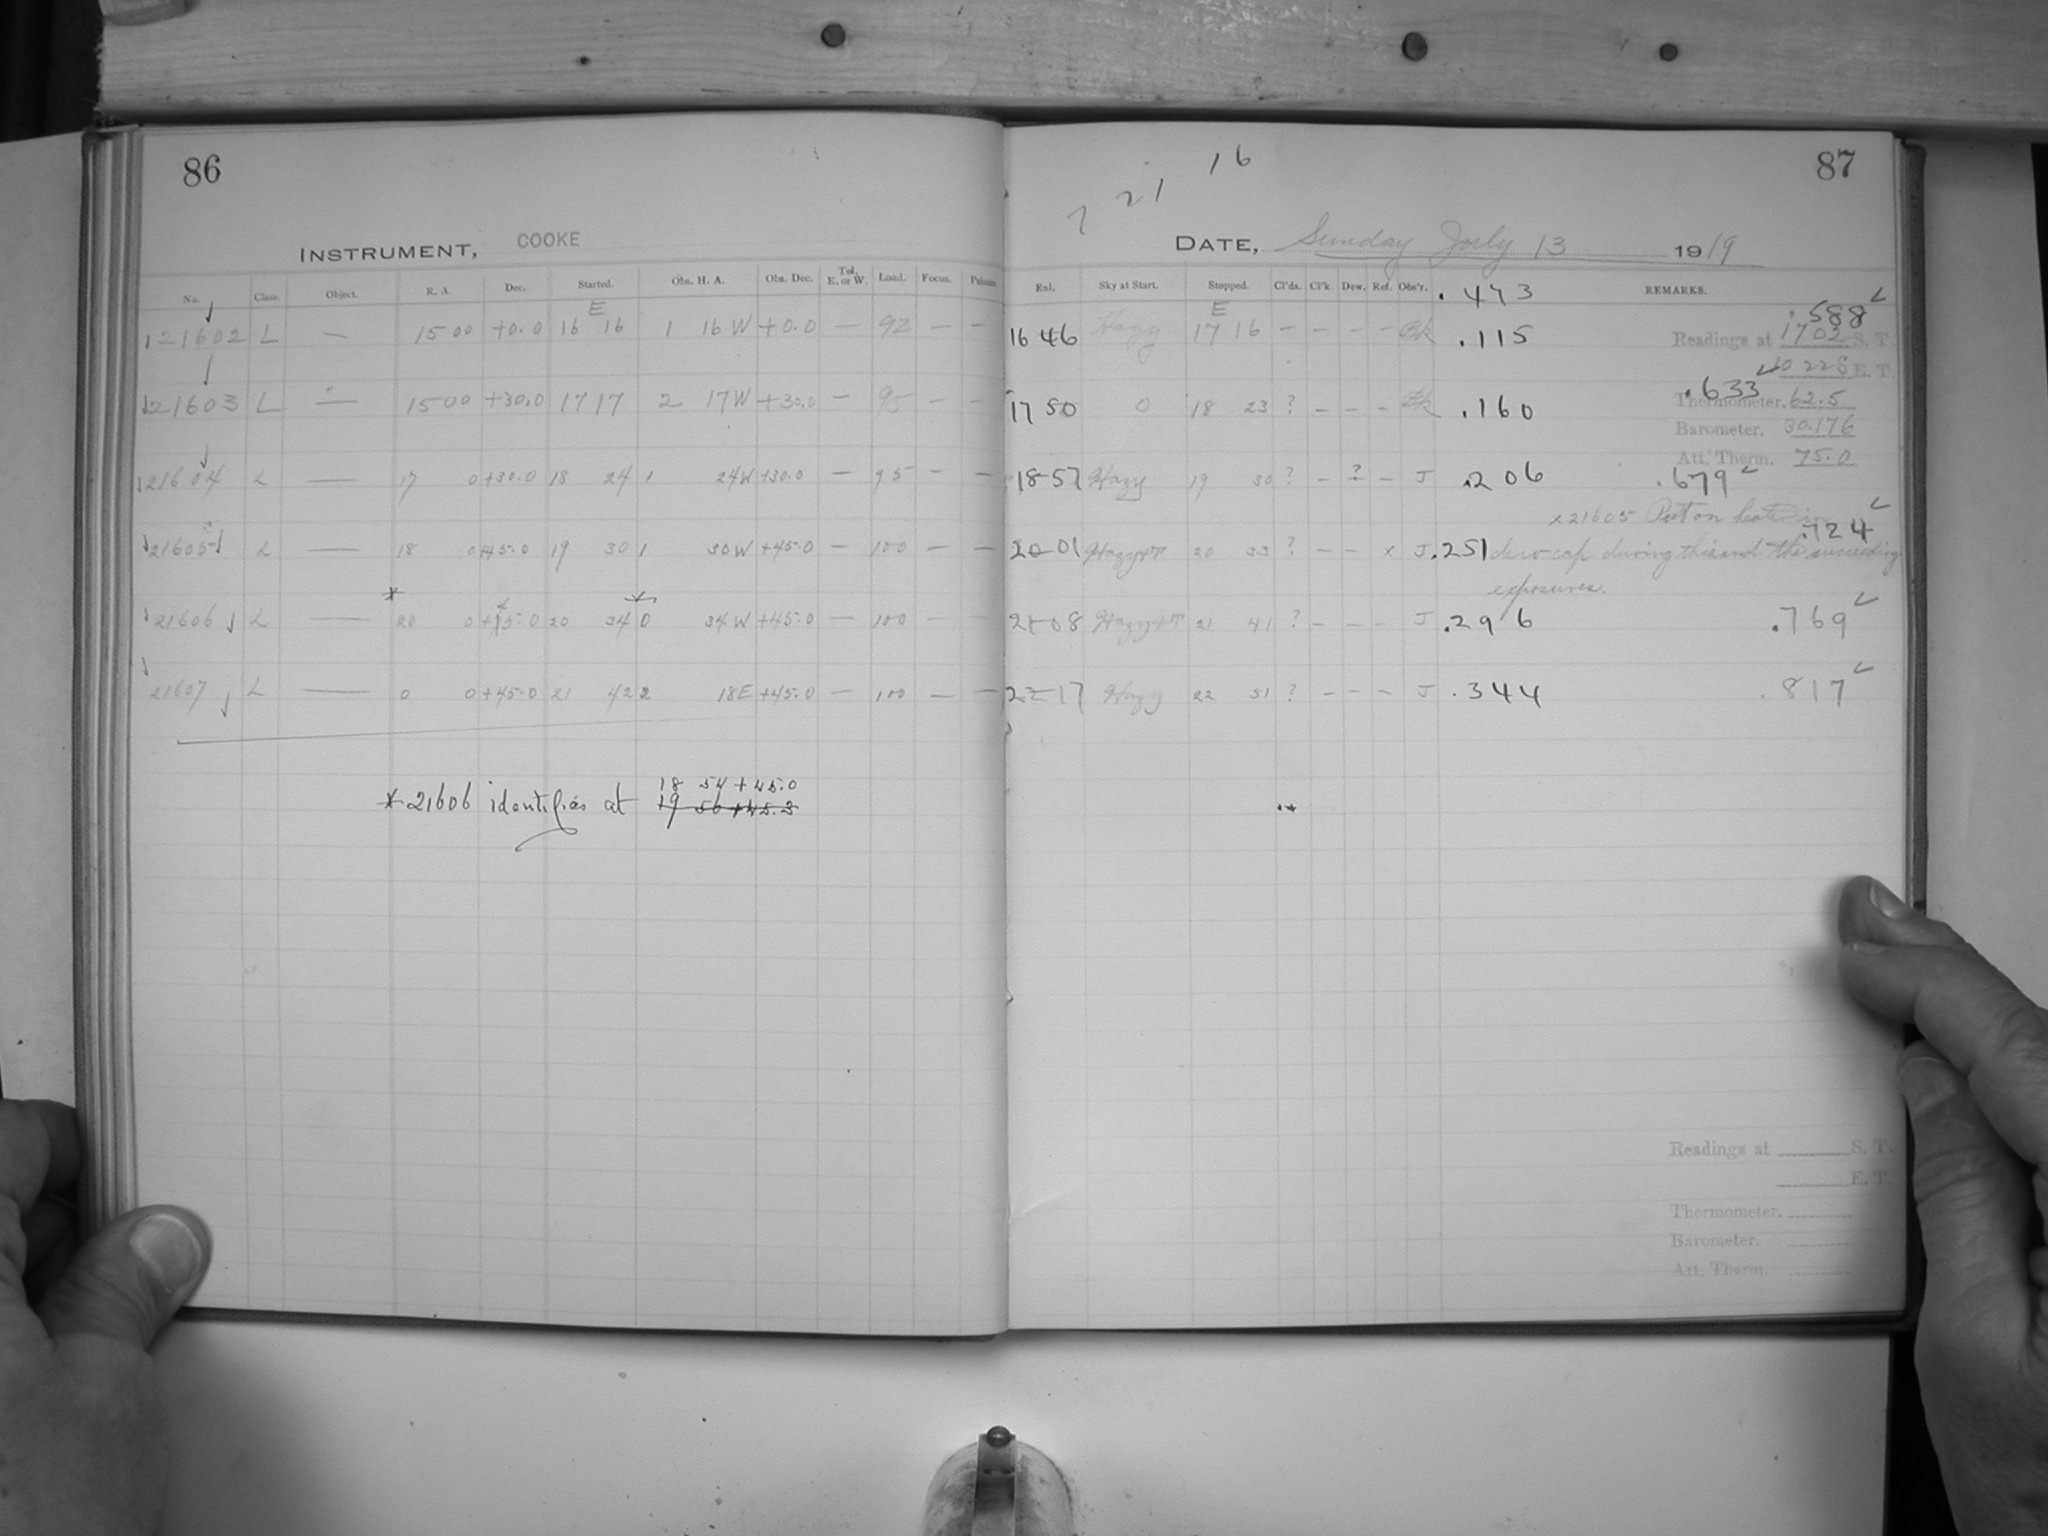 86
INSTRUMENT, COOKE
No. Class. Object. R. A. Dec. Started. Obs. H. A. Obs. Dec. Tel. E. or W. Load. Focus.
E
21602 L — 15 00 +0.0 16 16 1 16 W +0.0 — 92 — —
21603 L — 15 00 +30.0 17 17 2 17 W +30.0 — 95 — —
21604 L 17 0 +30.0 18 24 1 24 W +30.0 — 95 — —
21605 L — 18 0 +45.0 19 30 1 30 W +45.0 — 100 — —
*
21606 L — 20 0 20 34 0 34 W +45.0 — 100 — —
21607 L — 0 0 +45.0 21 42 2 18 E +45.0 — 100 — —
18 54 +45.0
* 21606 identifies at 19 56 +45.3
16
7 21
87
DATE, Sunday July 13 1919
Eol. Sky at Start. Stopped. Cl'ds. Cl'k. Dew. Ref. Obs'r. .473 REMARKS.
E
.588
16 46 Hazy 17 16 — — — — .115 Readings at 1702 S. T.
E. T.
.633
17 50 0 18 23 ? — — — .160 Thermometer. 62.5
Barometer. 30.176
Att. Therm. 75.0
18-57 Hazy 19 30 ? — ? — J .206 .679
x21605 Put on heater in
.724
20-01 20 33 ? — — x J .251 dew cap during this and the succeeding
exposures.
21-08 21 41 ? — — — J .296 .769
22-17 Hazy 22 51 ? — — — J .344 .817
Readings at S. T.
E. T.
Thermometer.
Barometer.
Att. Therm.